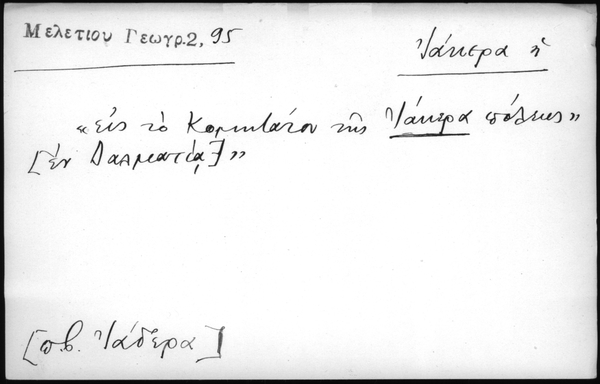 Μελετίου Γεωγρ. 2, 95
Ἰάκερα ἡ
«εἰς τὸ Κομιτάτον τῆς Ἰάκερα πόλεως»
[ἐν Δαλματίᾳ]»
[π.β. Ἰάδερα]